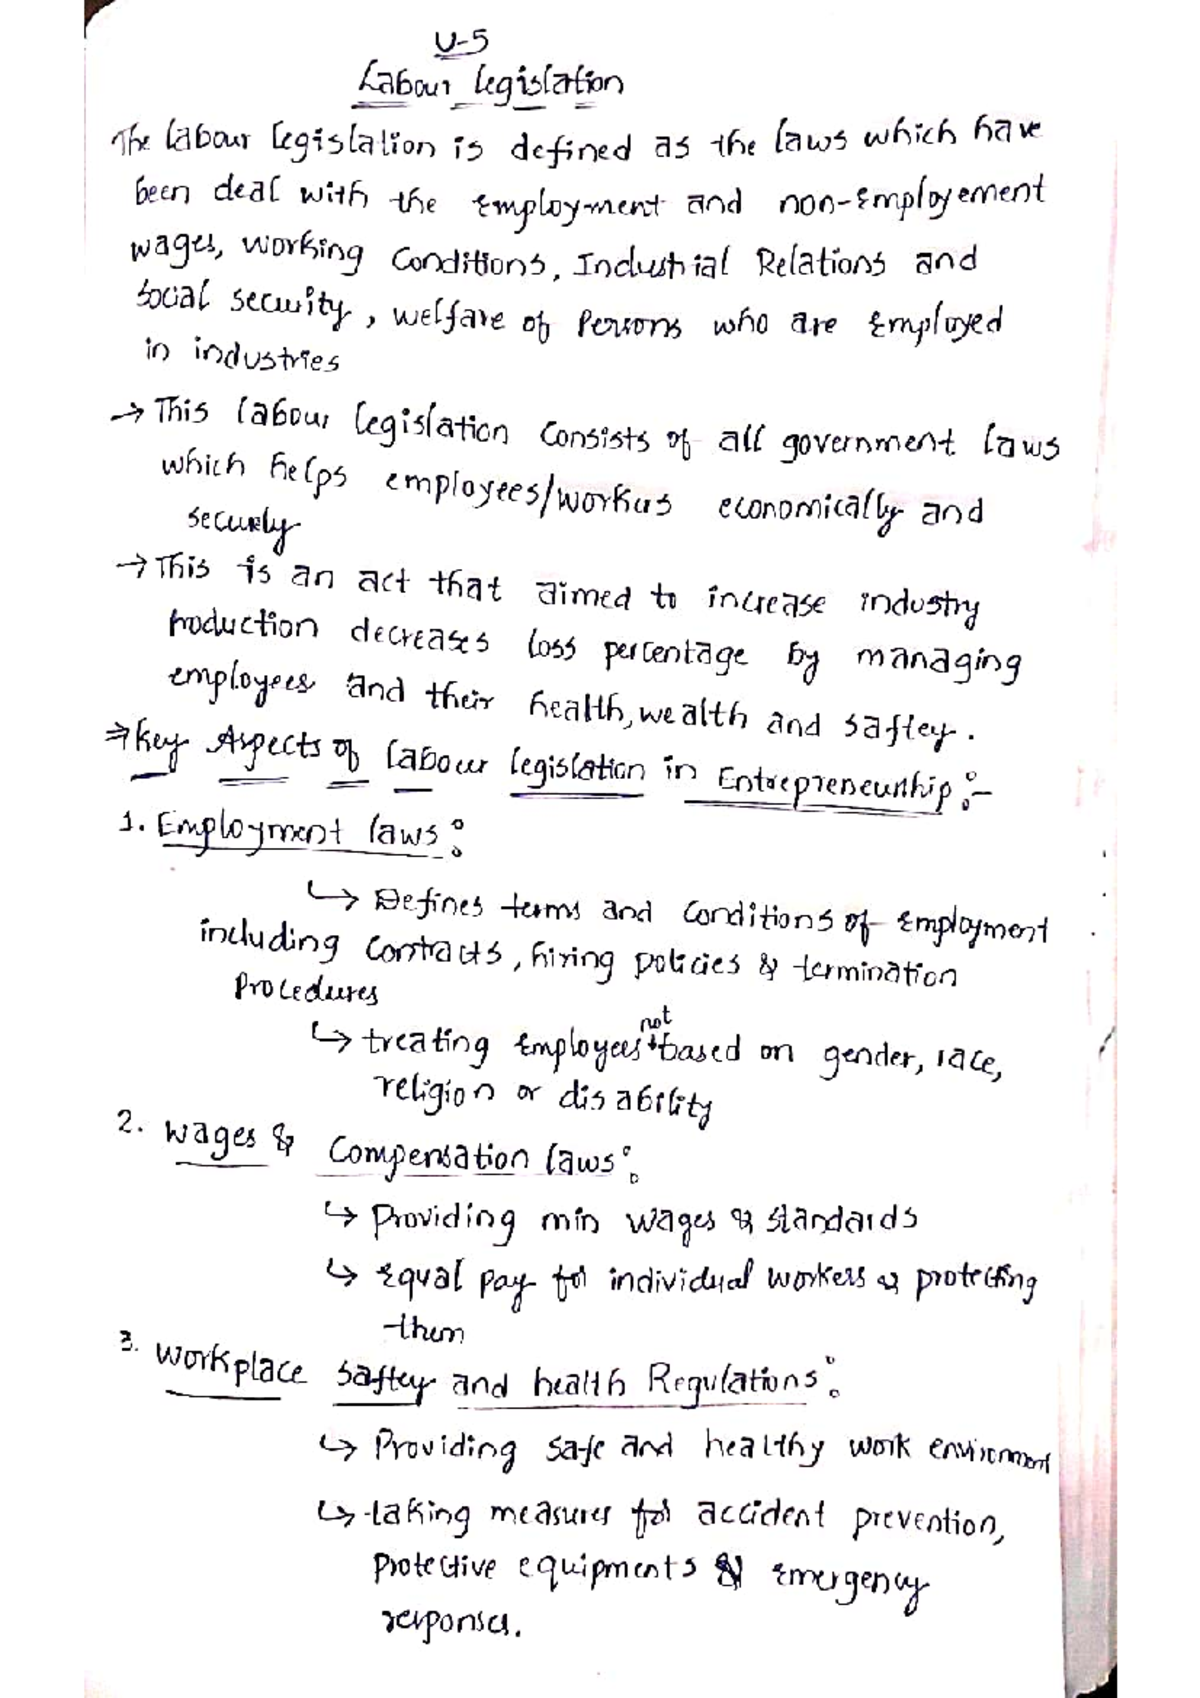 U-5
Labour legislation
The labour legislation is defined as the laws which have
been deal with the Employment and non-Employement
wages, working Conditions, Industrial Relations and
Social security, welfare of Persons who are Employed
in industries
→ This labour legislation Consists of all government laws
which helps employees/workers economically and
securely
→ This is an act that aimed to increase industry
production decreases loss percentage by managing
employees and their health, wealth and saftey.
⇒ Key Aspects of labour legislation in Entrepreneurship:-
1. Employment laws:
↳ Defines terms and Conditions of Employment
including Contracts, hiring policies & termination
Procedures
not
↳ treating Employees based on gender, race,
religion or disability
2. Wages & Compensation laws:
↳ Providing min wages & standards
↳ Equal pay for individual workers & protecting
them
3. Workplace Saftey and health Regulations:
↳ Providing safe and healthy work environment
↳ taking measures for accident prevention,
Protective equipments & Emergency
responses.